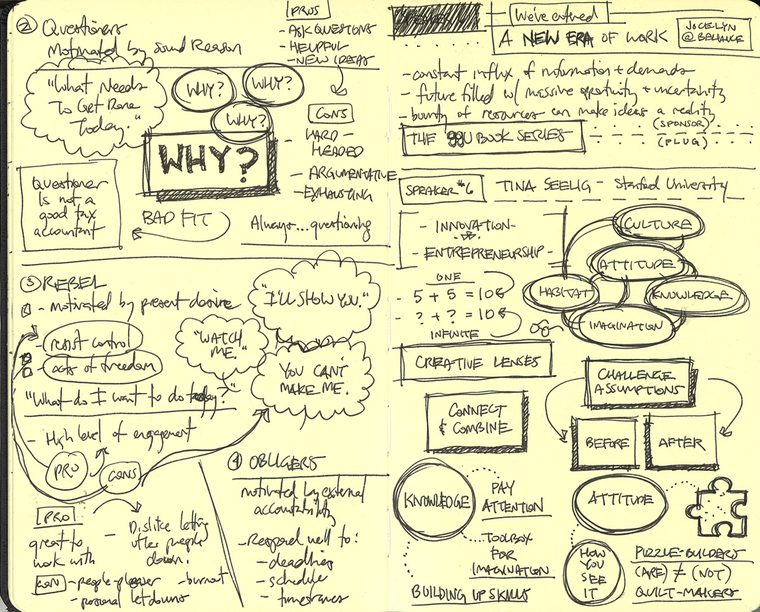 ② Questioners
Motivated by Sound Reason
"What Needs
To Get Done
Today."
WHY?
WHY?
WHY?
WHY?
PROS
- ASK QUESTIONS
- HELPFUL
- NEW IDEAS
CONS
- HARD-
HEADED
- ARGUMENTATIVE
- EXHAUSTING
Questioner
Is not a
good tax
accountant
BAD FIT
Always...questioning
③ REBEL
- motivated by present desire
- resist control
- acts of freedom
"What do I want to do today?"
- High level of engagement
PRO
CONS
"I'LL SHOW YOU."
"WATCH
ME."
YOU CAN'T
MAKE ME.
PRO
great to
work with
- Dislike letting
other people
down.
CON
- people-pleaser
- burnout
- personal letdowns
④ OBLIGERS
motivated by external
accountability
- Respond well to:
- deadlines
- schedule
We've entered
A NEW ERA OF WORK
JOCELYN
@BEHANCE
- constant influx of information + demands
- future filled w/ massive opportunity + uncertainty
- bounty of resources can make ideas a reality
THE 99U BOOK SERIES
(SPONSOR)
(PLUG)
SPEAKER #6
TINA SEELIG - Stanford University
- INNOVATION -
- ENTREPRENEURSHIP -
ONE
- 5 + 5 = 10
- ? + ? = 10
INFINITE
CULTURE
ATTITUDE
HABITAT
KNOWLEDGE
IMAGINATION
CREATIVE LENSES
CONNECT
& COMBINE
CHALLENGE
ASSUMPTIONS
BEFORE
AFTER
KNOWLEDGE
PAY
ATTENTION
TOOLBOX
FOR
IMAGINATION
BUILDING UP SKILLS
ATTITUDE
HOW
YOU
SEE
IT
PUZZLE-BUILDERS
(ARE) ≠ (NOT)
QUILT-MAKERS